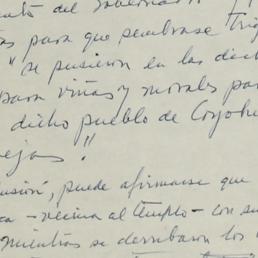 del Gobernador
para que sembrase trig
"se pusieron en las dich
Para viñas y morales par
dicho pueblo de Coyoh
ejas."
usión, puede afirmarse que
ca - vecina al templo - con su
mientras se derribaron los